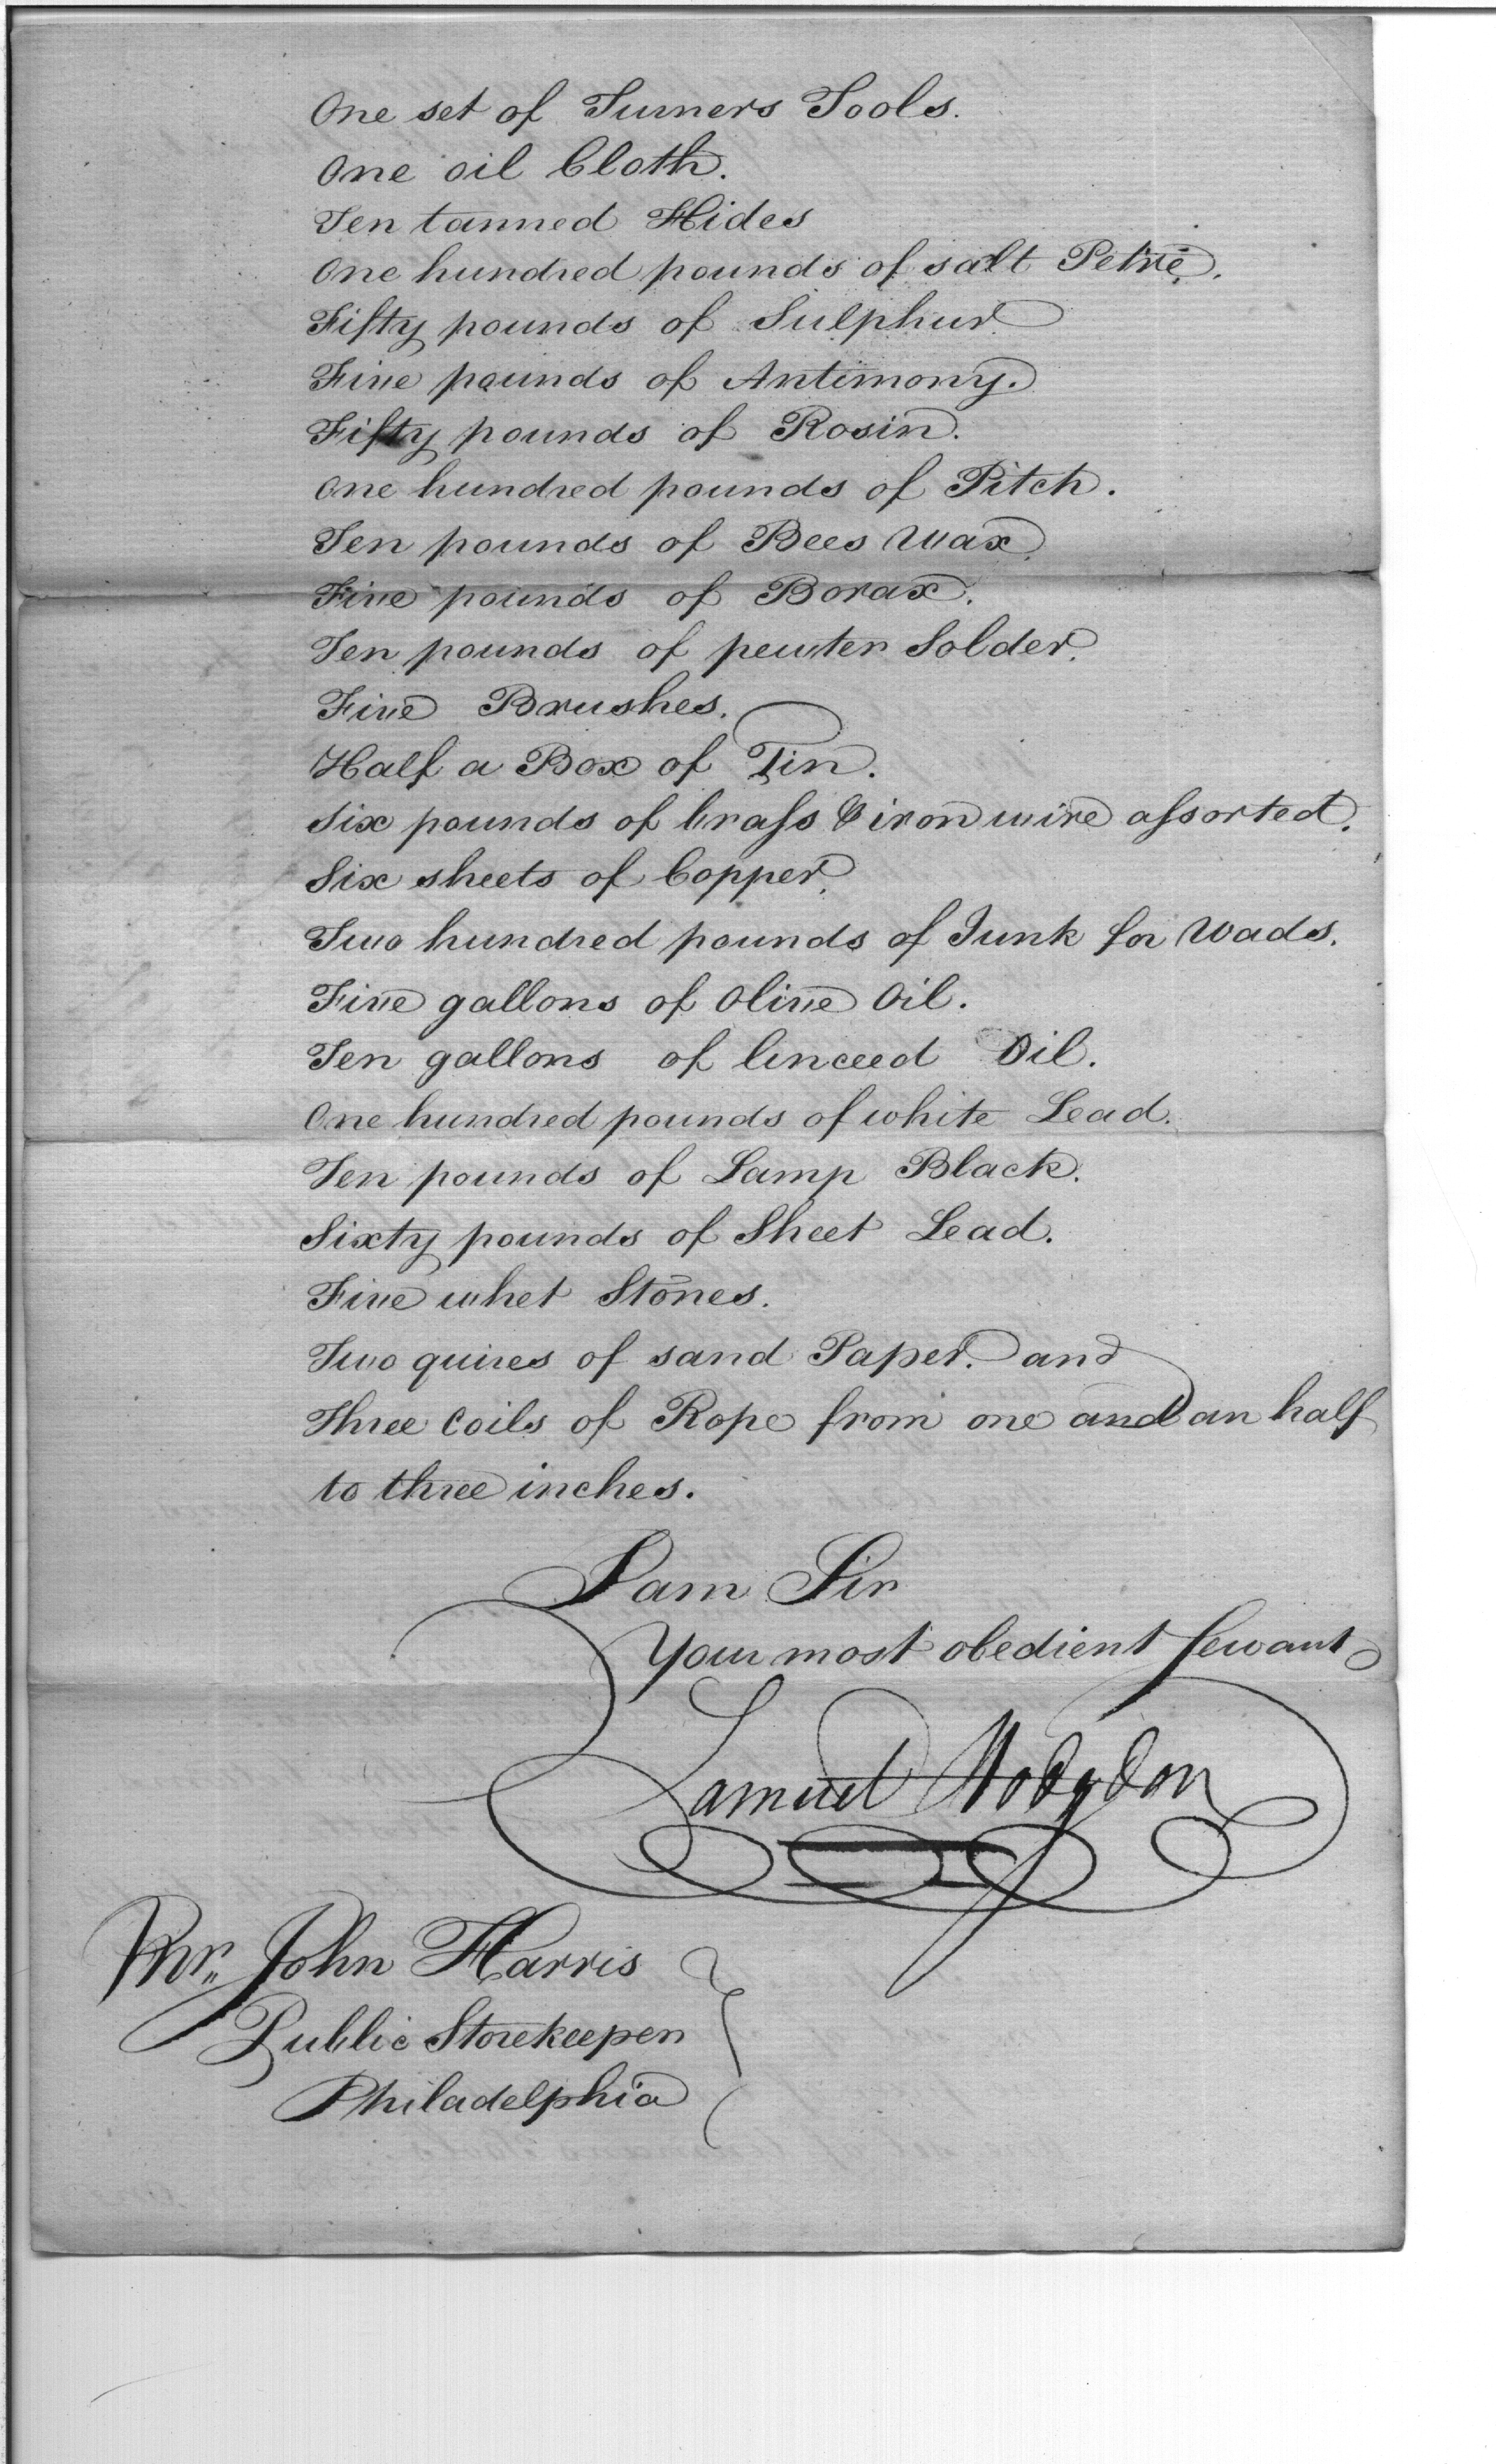 One set of Turners Tools.
One oil Cloth.
Ten tanned Hides
One hundred pounds of salt Petre.
Fifty pounds of Sulphur.
Five pounds of Antimony.
Fifty pounds of Rosin.
One hundred pounds of Pitch.
Ten pounds of Bees Wax.
Five pounds of Borax.
Ten pounds of pewter Solder.
Five Brushes.
Half a Box of Tin.
Six pounds of brass & iron wire assorted.
Six sheets of Copper.
Two hundred pounds of Junk for Wads.
Five gallons of Olive Oil.
Ten gallons of linceed Oil.
One hundred pounds of white Lead.
Ten pounds of Lamp Black.
Sixty pounds of Sheet Lead.
Five whet Stones.
Two quires of sand Paper. and
Three Coils of Rope from one and an half
to three inches.
I am Sir
Your most obedient servant
Samuel Hodgdon
Mr. John Harris
Public Storekeeper
Philadelphia